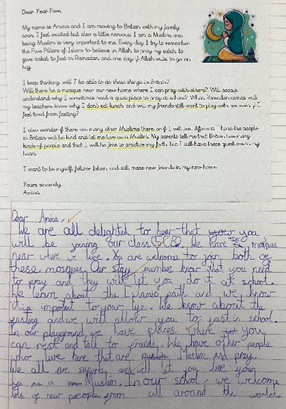 Dear Year Five,
My name is Amira and I am moving to Britain with my family
soon. I feel excited but also a little nervous. I am a Muslim and
being Muslim is very important to me. Every day I try to remember
the Five Pillars of Islam to believe in Allah, to pray my salah, to
give zakat, to fast in Ramadan and one day, if Allah wills, to go on
hajj.
I keep thinking: will I be able to do these things in Britain?
Will there be a mosque near our new home where I can pray with others? Will people
understand why I sometimes need a quiet place to pray at school? When Ramadan comes will
my teachers know why I don't eat lunch and will my friends still want to play with me even if I
feel tired from fasting?
I also wonder if there are many other Muslims there or if I will be different.
in Britain will be kind and let me live as a Muslim. My parents tell me that Britain has many
kinds of people and that I will be free to practise my faith, but I still have these questions in my
heart.
I want to be myself, follow Islam and still make new friends in my new home.
Yours sincerely,
Amira
Dear Amira,
We are all delighted to hear that you
will be joining our class. We have mosques
near where we live. You are welcome to join both of
these mosques. Our staff member hear that you need
to pray and they will let you do it at school.
We learn about the Islamic faith and we know
important to your life. We know about the
fasting and we will allow you to fast in school.
In our playground we have places there you
can rest and talk to friends. We have other people
who live here that are Muslim and pray.
We all are and will let you live
as a Muslim. In our school, we welcome
lots of new people from all around the world.